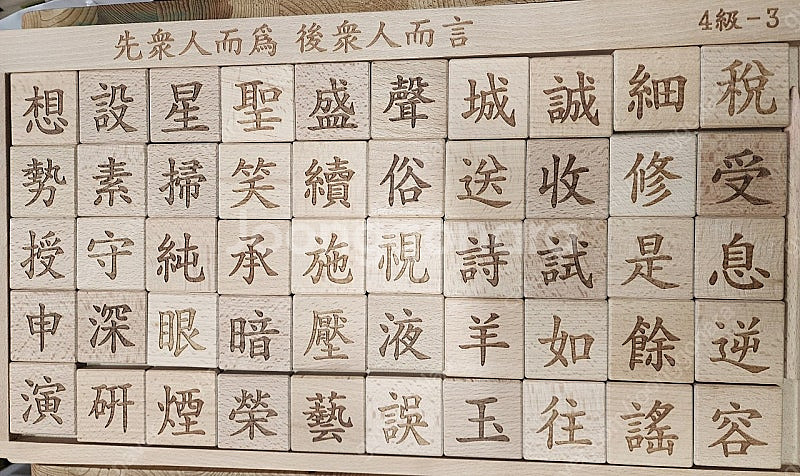 先衆人而爲 後衆人而言
4級-3
想設星聖盛聲城誠細稅
勢素掃笑續俗送收修受
授守純承施視詩試是息
申深眼暗壓液羊如餘逆
演硏煙榮藝誤玉往謠容